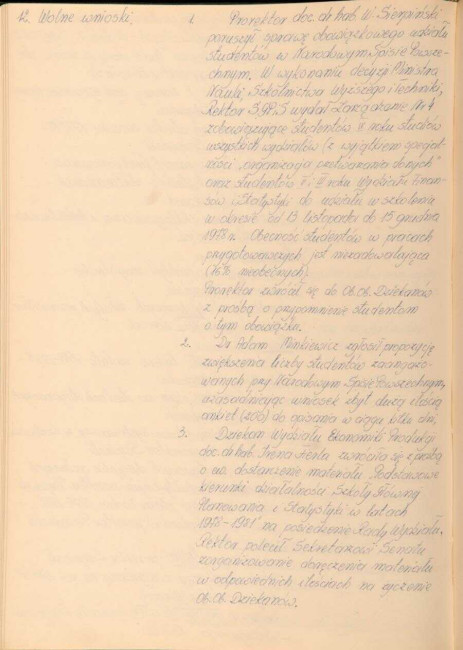 12. Wolne wnioski. 1. Prorektor doc. dr hab. W. Sierpiński
poruszył sprawę obowiązkowego udziału
studentów w Narodowym Spisie Powsze-
chnym. W wykonaniu decyzji Ministra
Nauki, Szkolnictwa Wyższego i Techniki,
Rektor SGPiS wydał Zarządzenie Nr 4
zobowiązujące studentów II roku studiów
wszystkich wydziałów (z wyjątkiem specjal-
ności "organizacja przetwarzania danych"
oraz studentów II i III roku Wydziału Finan-
sów i Statystyki do udziału w szkoleniu
w okresie od 13 listopada do 15 grudnia
1978 r. Obecność studentów w pracach
przygotowawczych jest niezadowalająca
(76% nieobecnych).
Prorektor zwrócił się do Ob. Ob. Dziekanów
z prośbą o przypomnienie studentom
o tym obowiązku.
2. Dr Adam zgłosił propozycję
zwiększenia liczby studentów zaangażo-
wanych przy Narodowym Spisie Powszechnym,
uzasadniając wniosek zbyt dużą ilością
ankiet do opisania w ciągu kilku dni.
3. Dziekan Wydziału Ekonomiki Produkcji
doc. dr hab. Irena zwróciła się z prośbą
o dostarczenie materiału "Podstawowe
kierunki działalności Szkoły Głównej
Planowania i Statystyki w latach
1978-1981 na posiedzenie Rady Wydziału.
Rektor polecił Sekretarzowi Senatu
zorganizowanie doręczenia materiału
w odpowiednich ilościach na życzenie
Ob. Ob. Dziekanów.